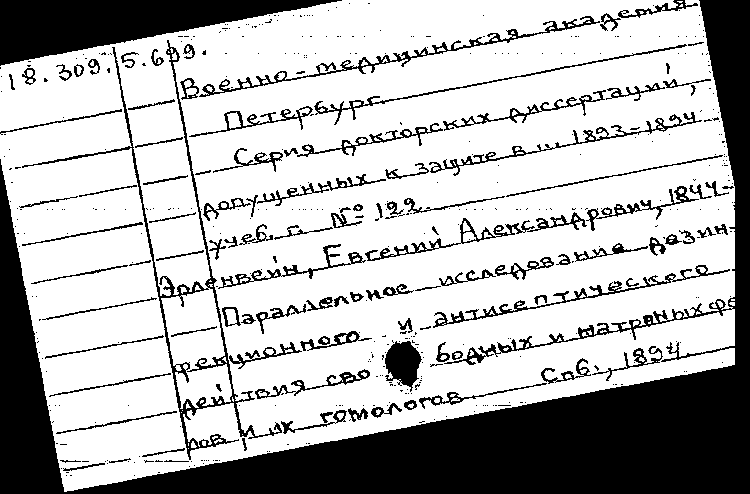 18.309.5.699.
Военно-медицинская академия
Петербург.
Серия докторских диссертаций,
допущенных к защите в ... 1893-1894
учеб. г. № 122.
Эрленвейн, Евгений Александрович, 1844-
Параллельное исследование дезин-
фекционного и антисептического
действия сво бодных и натровых фе
лов и их гомологов. Спб., 1894.